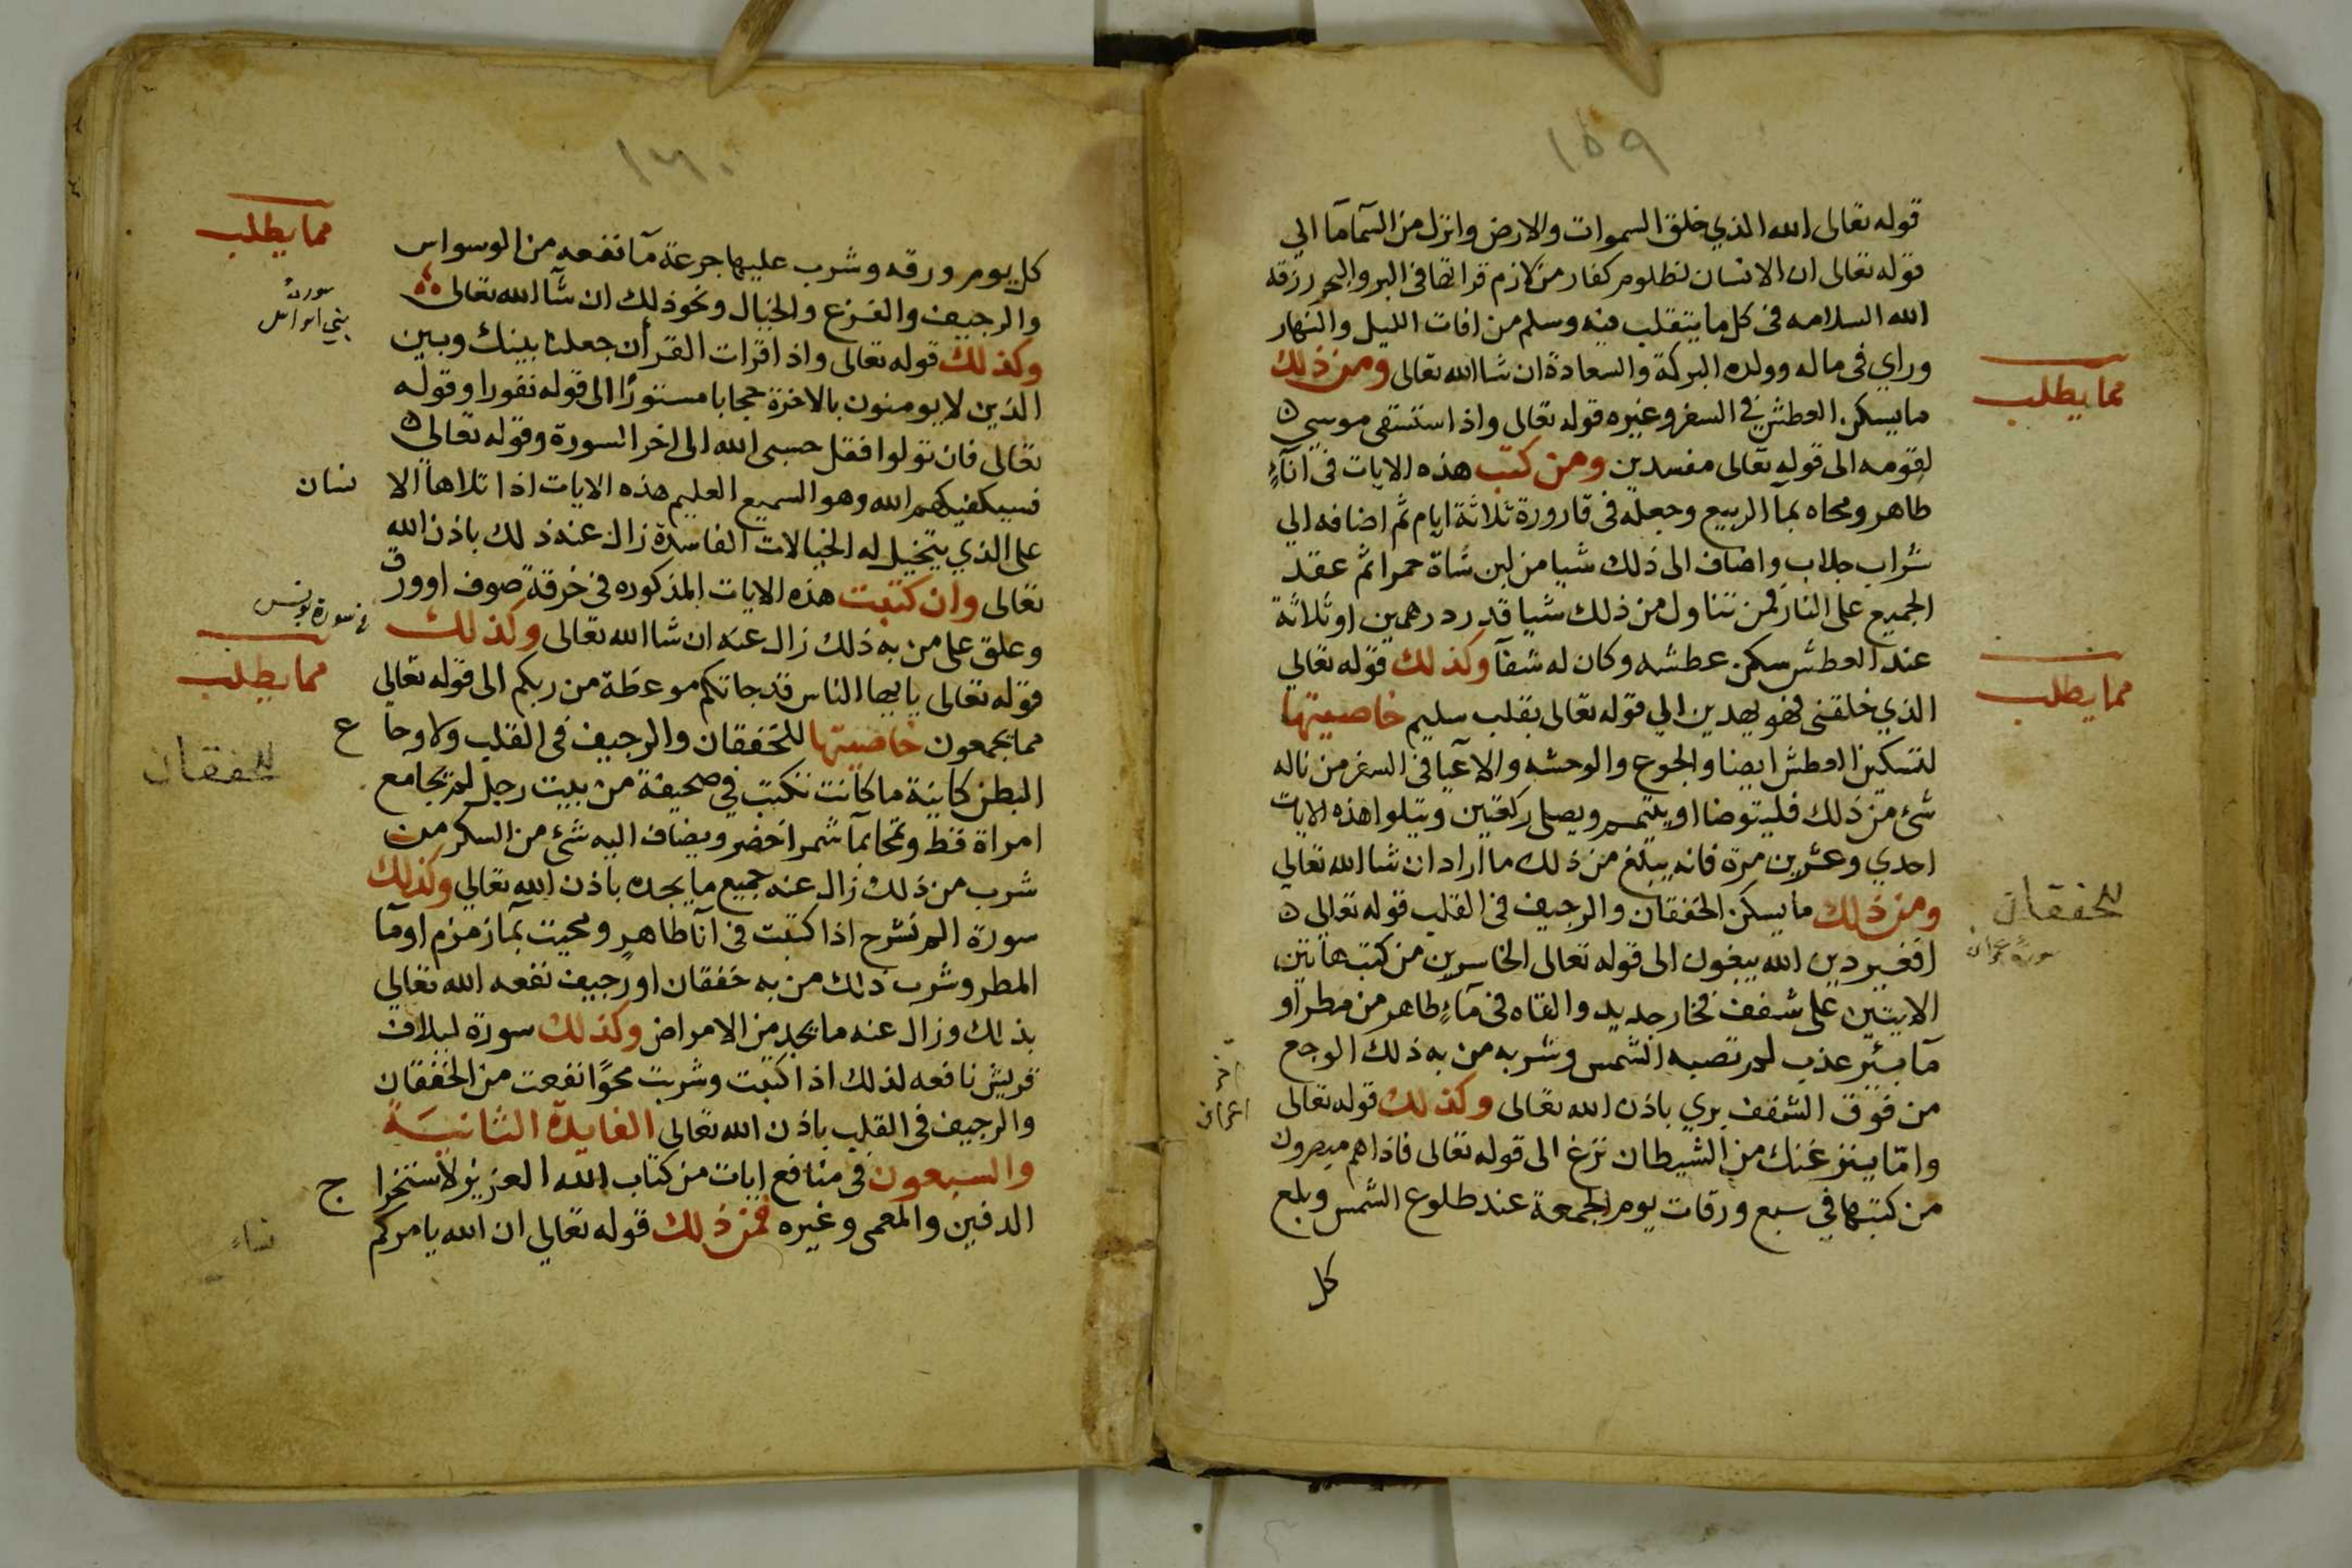 ١٥٩
قوله تعالى الله الذي خلق السموات والارض وانزل من السمآ مآ الي
قوله تعالى ان الانسان لظلوم كفار من لازم قراتها في البر والبحر رزقه
الله السلامه في كل ما يتقلب فيه وسلم من افات الليل والنهار
وراي في ماله وولده البركة والسعادة ان شا الله تعالى ومن ذلك
مما يطلب
ما يسكن العطش في السفر وغيره قوله تعالى واذ استسقى موسي
لقومه الى قوله تعالى مفسدين ومن كتب هذه الايات في انآءٍ
طاهر ومحاه بمآ الربيع وجعله في قارورة ثلاثة ايام ثم اضافه الي
شراب جلاب واضاف الى ذلك شيا من لبن شاة حمرا ثم عقد
الجميع على النار فمن تناول من ذلك شيا قدر درهمين او ثلاثة
عند العطش سكن عطشه وكان له شفآ وكذلك قوله تعالي
مما يطلب
الذي خلقني فهو يهدين الي قوله تعالى بقلب سليم خاصيتها
لتسكين العطش ايضا والجوع والوحشه والاعيا في السفر من ناله
شئ من ذلك فليتوضا او يتيمم ويصلى ركعتين ويتلوا هذه الايات
احدي وعشرين مرة فانه يبلغ من ذلك ما اراد ان شا الله تعالي
ومن ذلك ما يسكن الخفقان والرجيف في القلب قوله تعالى
للخفقان
افغير دين الله يبغون الى قوله تعالى الخاسرين من كتب هاتين
سورة عمران
الايتين على شقف فخار جديد والقاه في مآءٍ طاهر من مطر او
مآ بئر عذب لم تصبه الشمس وشربه من به ذلك الوجع
من فوق الشقف بري باذن الله تعالى وكذلك قوله تعالى
واما ينزغنك من الشيطان نزغ الى قوله تعالى فاذا هم مبصرون
من كتبها في سبع ورقات يوم الجمعة عند طلوع الشمس وبلع
كل
١٦٠
كل يوم ورقه وشرب عليها جرعة مآ نفعه من الوسواس
مما يطلب
والرجيف والفزع والخيال ونحو ذلك ان شآ الله تعالى
سورة
بني اسرائيل
وكذلك قوله تعالى واذا قرات القرأن جعلنا بينك وبين
الذين لا يومنون بالاخرة حجابا مستورًا الى قوله نفورا وقوله
تعالى فان تولوا فقل حسبى الله الى اخر السورة وقوله تعالي
فسيكفيكهم الله وهو السميع العليم هذه الايات اذا تلاها الا نسان
على الذي يتخيل له الخيالات الفاسدة زال عنه ذلك باذن الله
تعالى وان كتبت هذه الايات المذكوره في خرقة صوف او ورق
وعلق على من به ذلك زال عنه ان شا الله تعالى وكذلك
في سورة يونس
مما يطلب
قوله تعالى يا يها الناس قد جاتكم موعظة من ربكم الى قوله تعالي
مما يجمعون خاصيتها للخفقان والرجيف في القلب ولاوجا ع
للخفقان
البطن كاينة ما كانت تكتب في صحيفة من بيت رجل لم يجامع
امراة قط وتمحا بمآ شمر اخضر ويضاف اليه شئ من السكر من
شرب من ذلك زال عنه جميع ما يجده باذن الله تعالي وكذلك
سورة الم نشرح اذا كتبت في انآ طاهر ومحيت بمآ زمزم او مآ
المطر وشرب ذلك من به خفقان او رجيف نفعه الله تعالي
بذلك وزال عنه ما يجد من الامراض وكذلك سورة ليلاف
قريش نافعه لذلك اذا كتبت وشربت محوًا نفعت من الخفقان
والرجيف في القلب باذن الله تعالي الفايدة الثانية
والسبعون في منافع ايات من كتاب الله العزيز لاستخرا ج
الدفين والمعمى وغيره فمن ذلك قوله تعالى ان الله يامركم
نساء